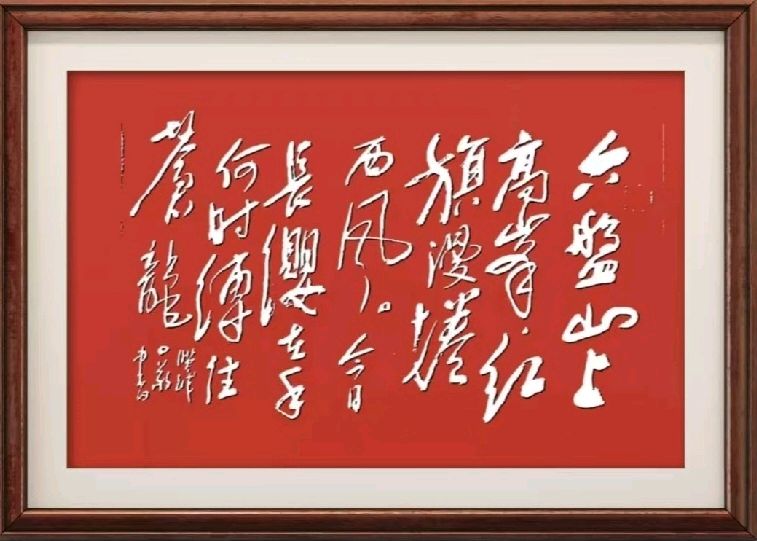 六盤山上
高峯·红
旗漫捲
西风。今日
長纓在手
何时縛住
蒼龍